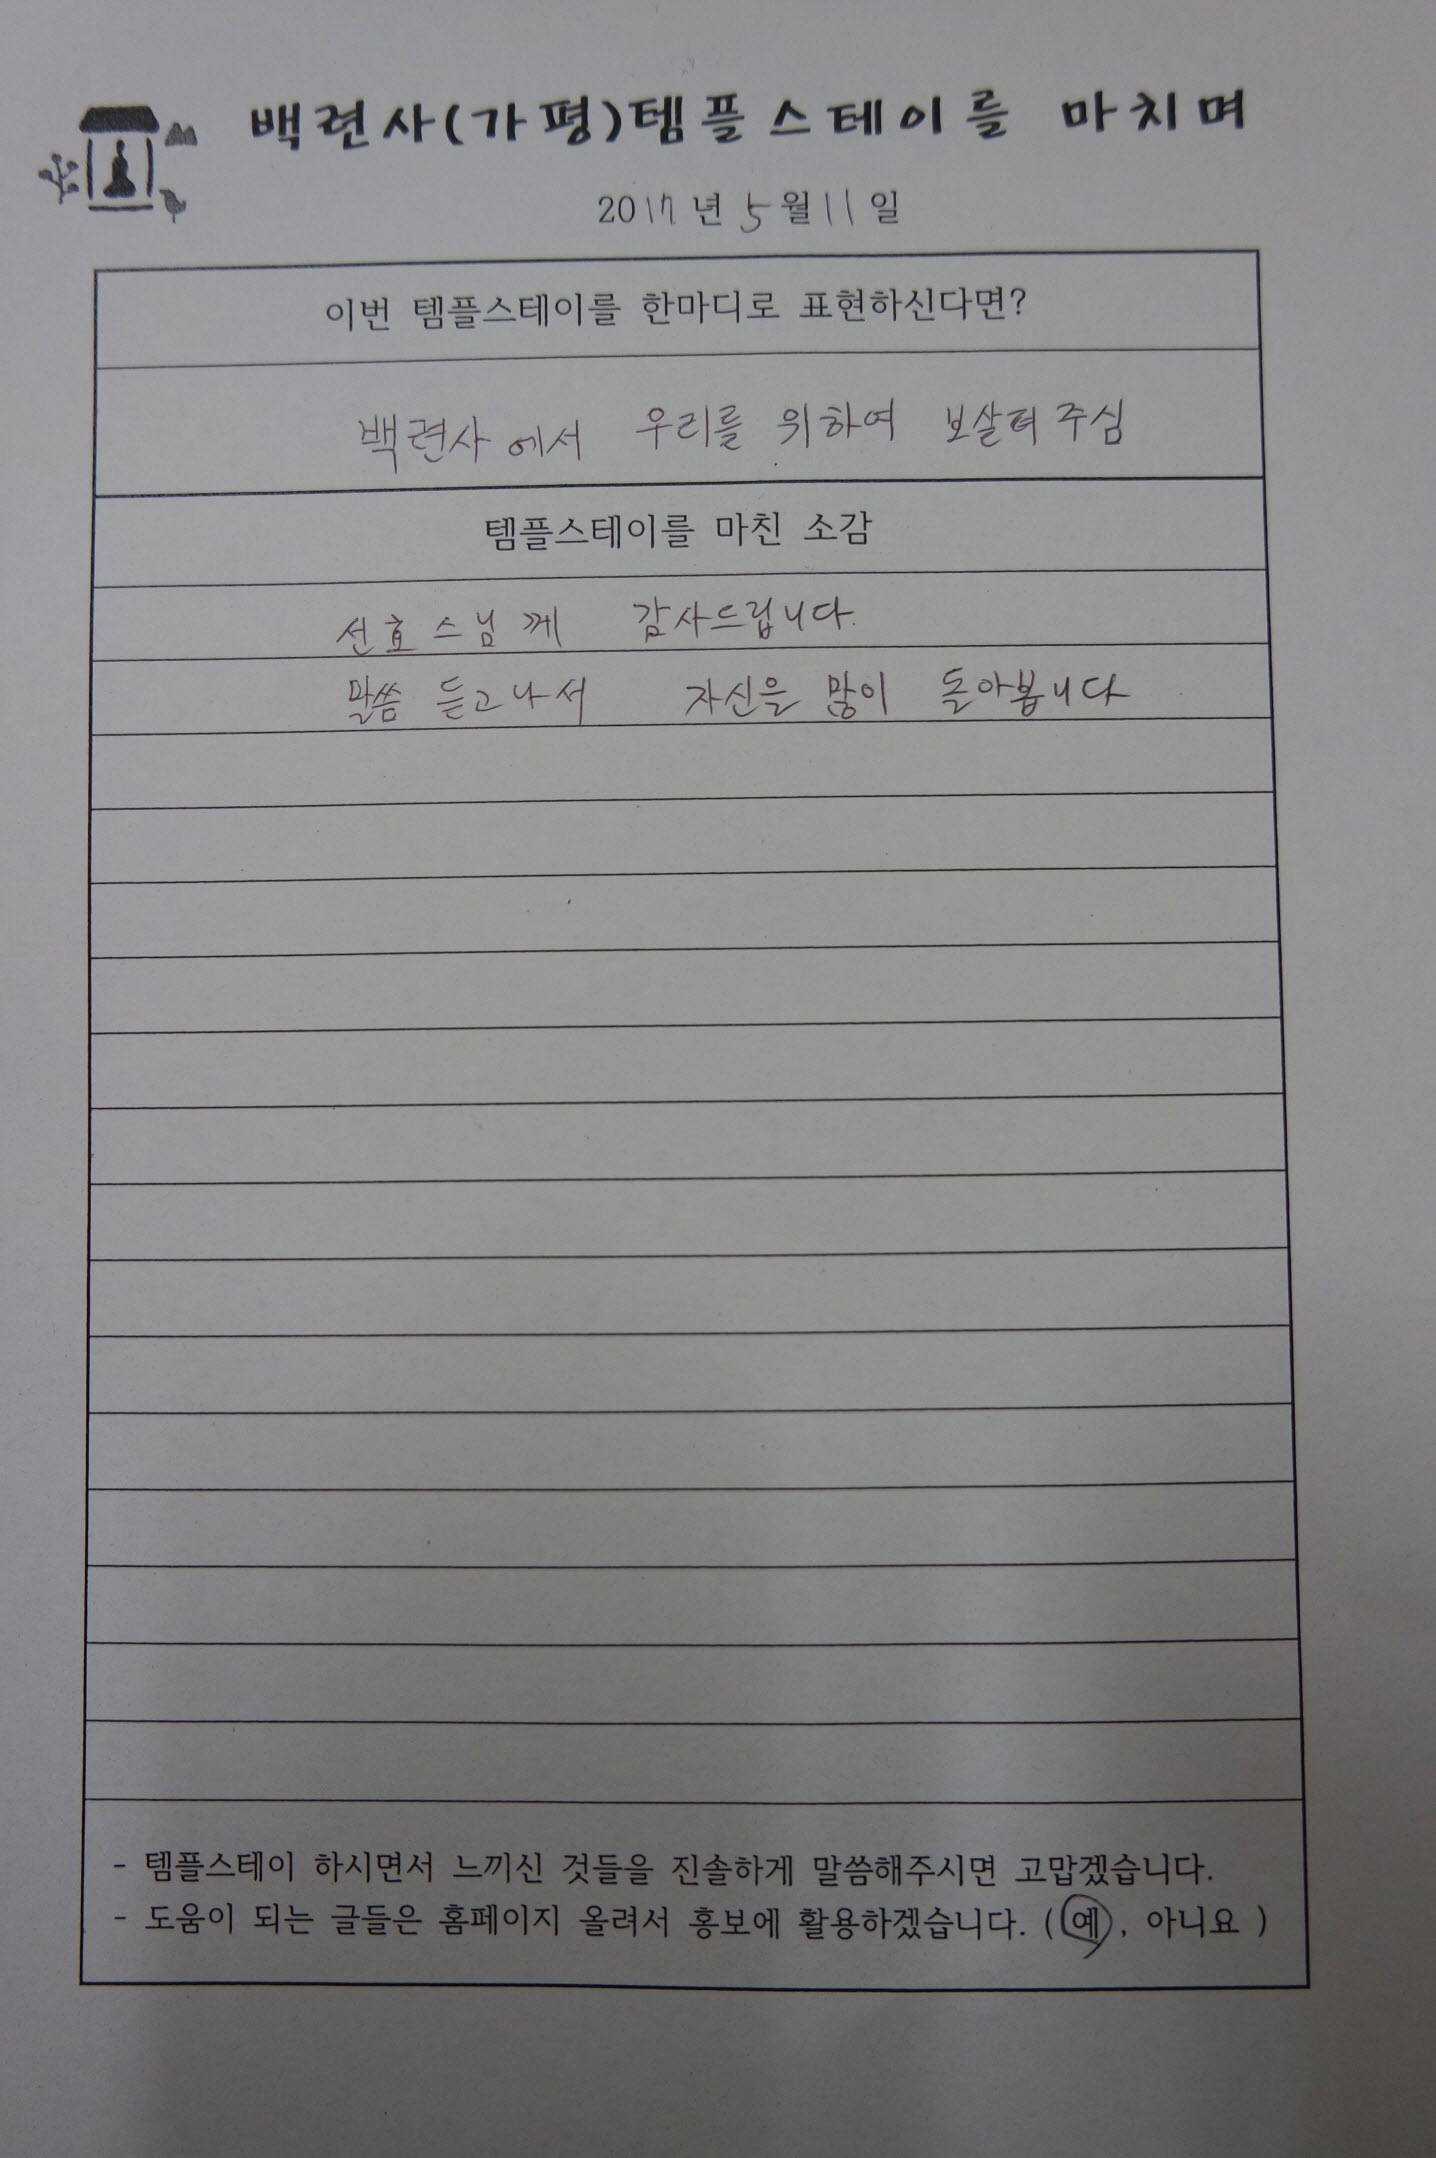 백련사(가평)템플스테이를 마치며
2017년 5월 11일
이번 템플스테이를 한마디로 표현하신다면?
백련사에서 우리를 위하여 보살펴 주심
템플스테이를 마친 소감
선효스님께 감사드립니다.
말씀 듣고나서 자신을 많이 돌아봅니다
- 템플스테이 하시면서 느끼신 것들을 진솔하게 말씀해주시면 고맙겠습니다.
- 도움이 되는 글들은 홈페이지 올려서 홍보에 활용하겠습니다. ( 예, 아니요 )